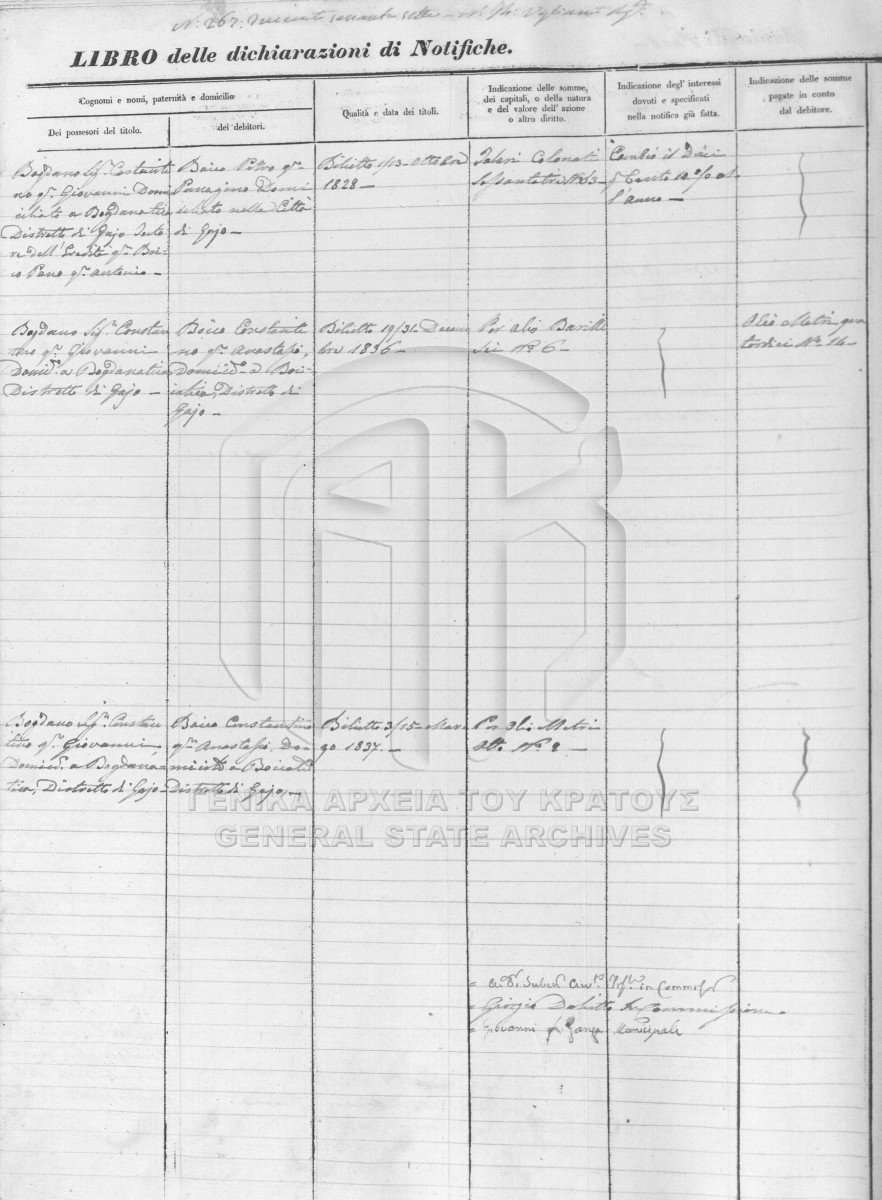 N. 267.
LIBRO delle dichiarazioni di Notifiche.
Cognomi e nomi, paternità e domicilio
Dei possesori del titolo.
dei debitori.
Qualità e data dei titoli.
Indicazione delle somme,
dei capitali, o della natura
e del valore dell' azione
o altro diritto.
Indicazione degl' interessi
dovuti e specificati
nella notifica già fatta.
Indicazione delle somme
pagate in conto
dal debitore.
Bogdano Sigr. Costanti
no qm. Giovanni Domi
ciliato a Bogdanatica
Distretto di Gajo
re dell' Eredità qm. Boi-
co Pano qm. Antonio -
Boico Petro qm.
Panagino Domi
ciliato nella Città
di Gajo -
Biglietto 1/13 Ottobre
1828 -
Talari Colonati
Sessantatre No. 63 -
Cambio il Dieci
l'anno -
Bogdano Sigr. Constan
tino qm. Giovanni
Domicilo. a Bogdanatica
Distretto di Gajo -
Boico Constanti
no qm. Anastasi,
Domicilo. a Boi-
catica, Distretto di
Gajo -
Biglietto 19/31 Decem
bre 1836 -
Per olio Barille
Sei No. 6 -
Olio Metri qua
tordici No. 14 -
Bogdano Sigr. Constan
tino qm. Giovanni
Domicilo. a Bogdana-
tica, Distretto di Gajo -
Boico Constantino
qm. Anastasi, Do-
miciliato a Boicati
Distretto di Gajo, -
Biglietto 3/15 Mar
zo 1837. -
Per Olio Metri
otto No. 8 -
Giorgio
Giovanni
Municipale
ΓΕΝΙΚΑ ΑΡΧΕΙΑ ΤΟΥ ΚΡΑΤΟΥΣ
GENERAL STATE ARCHIVES